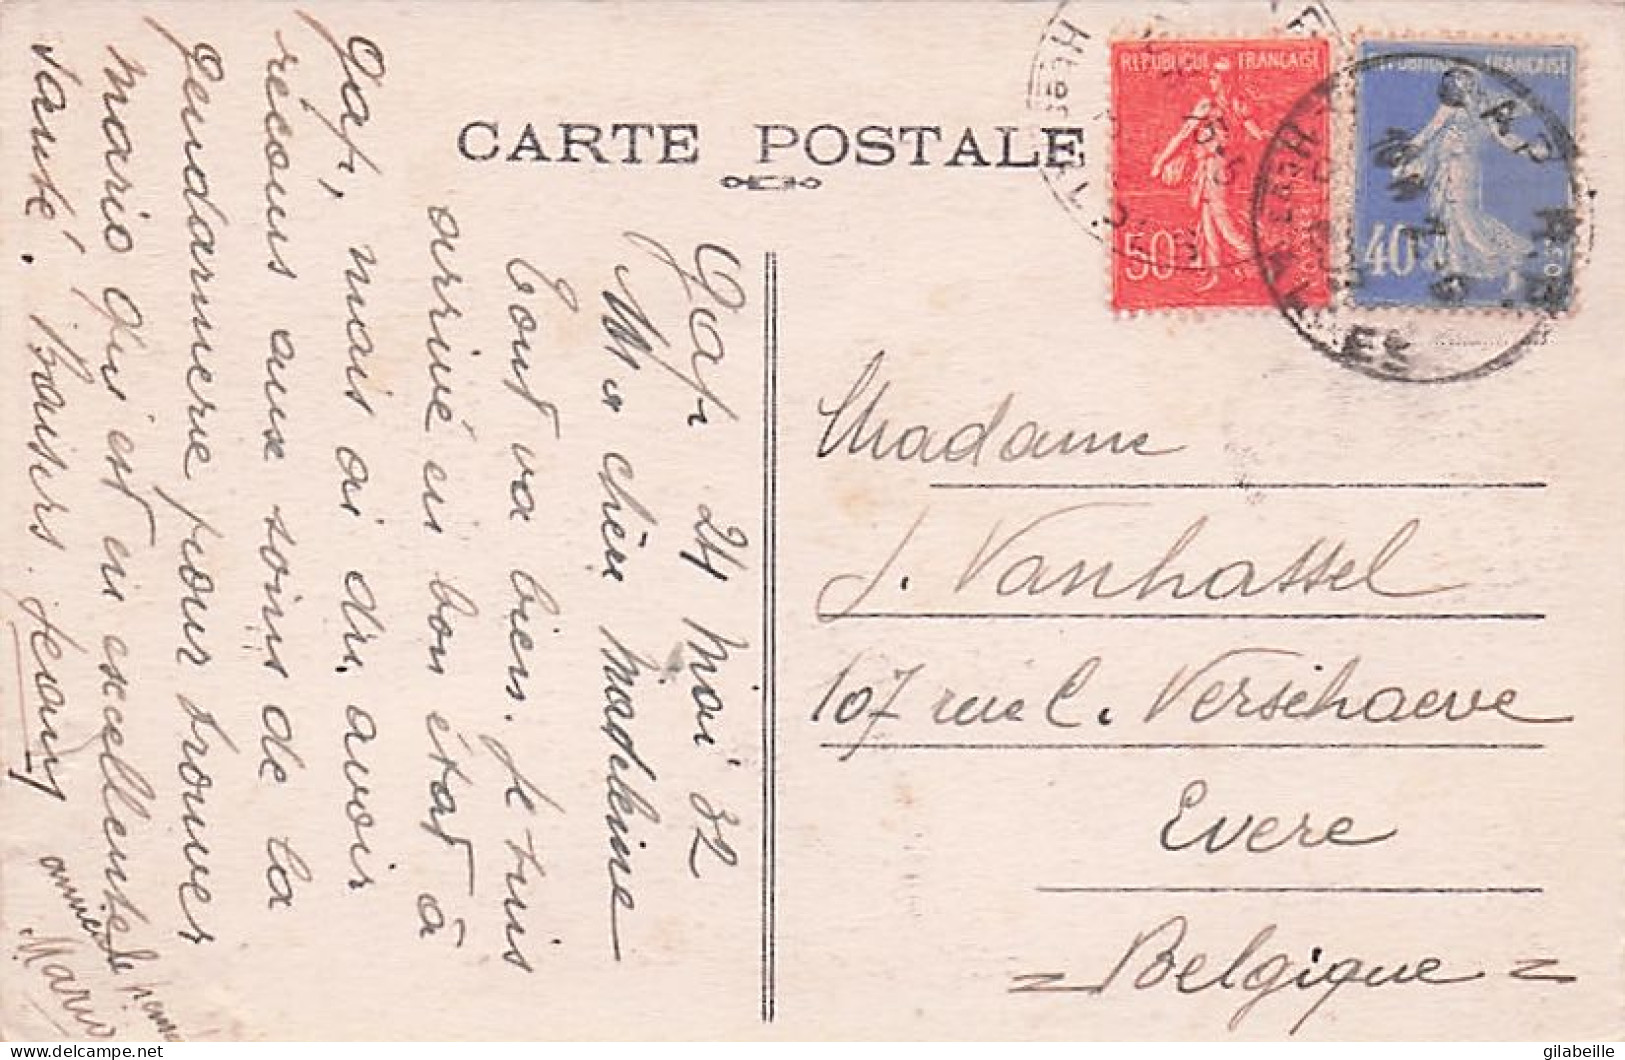 CARTE POSTALE
REPUBLIQUE FRANÇAISE
50
REPUBLIQUE FRANÇAISE
40
GAP
HTES ALPES
Gap 24 Mai 32
Ma chère Madeleine
tout va bien. Je suis
arrivé en bon état à
Gap, mais ai dû avoir
recours aux soins de la
Gendarmerie pour trouver
Mario qui est en excellente
santé. Baisers. Jeany
Mario
Madame
J. Vanhassel
107 rue C. Verschaeve
Evere
Belgique
gilabeille